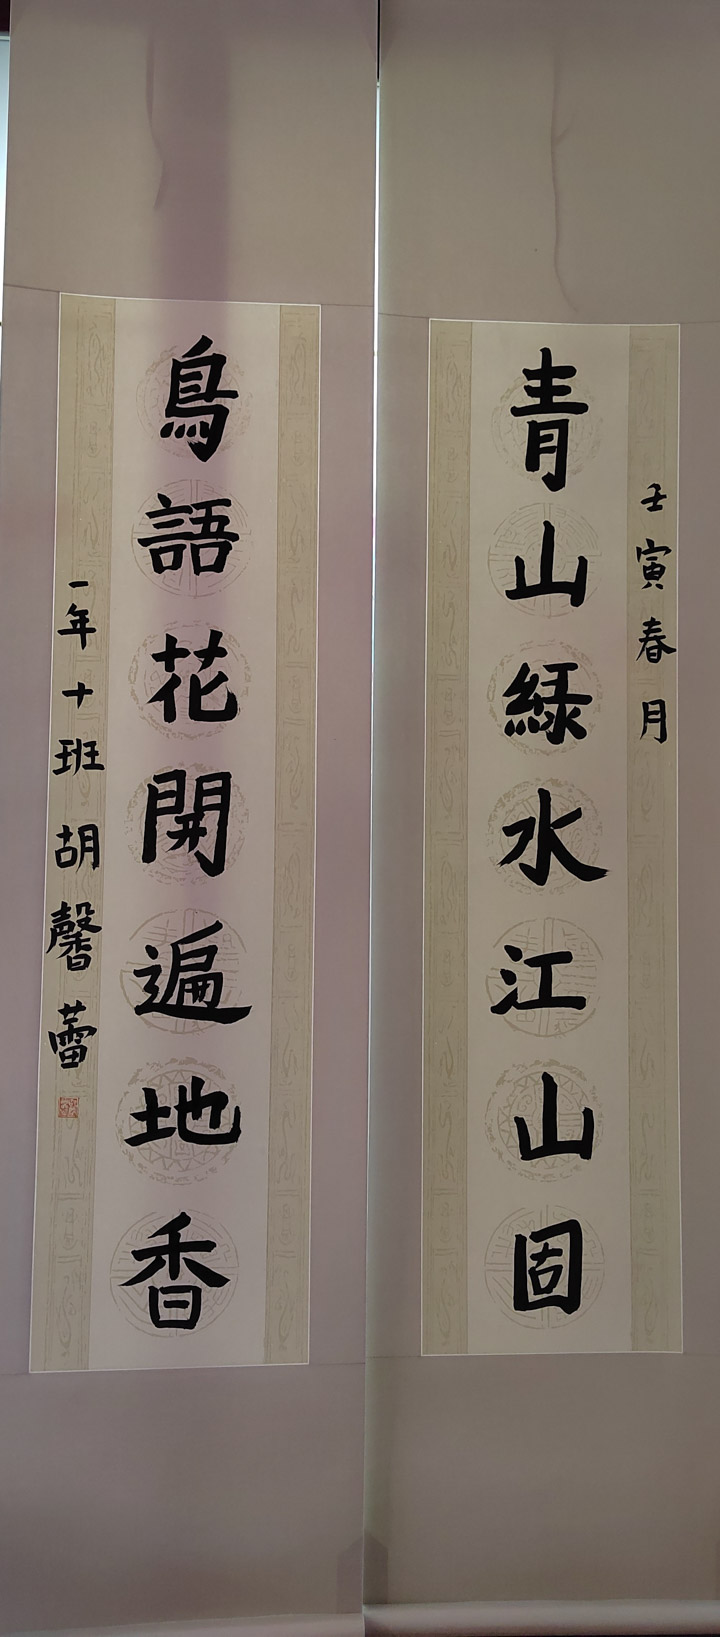 壬寅春月
青山緑水江山固
鳥語花開遍地香
一年十班胡馨蕾